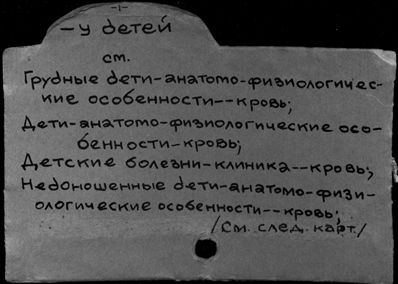 -1-
— у детей
см.
Грудные дети-анатомо-физиологичес-
кие особенности--кровь;
Дети-анатомо-физиологические осо-
бенности-кровь;
Детские болезни-клиника--кровь;
Недоношенные дети-анатомо-физи-
ологические особенности--кровь;
/См. след. карт./